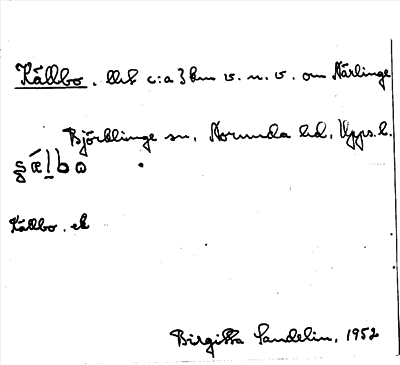 Källbo. c:a 3 km v. n. v. om Närlinge
Björklinge sn, Norunda hd, Upps. l.
Källbo. ek
Birgitta Sandelin, 1952